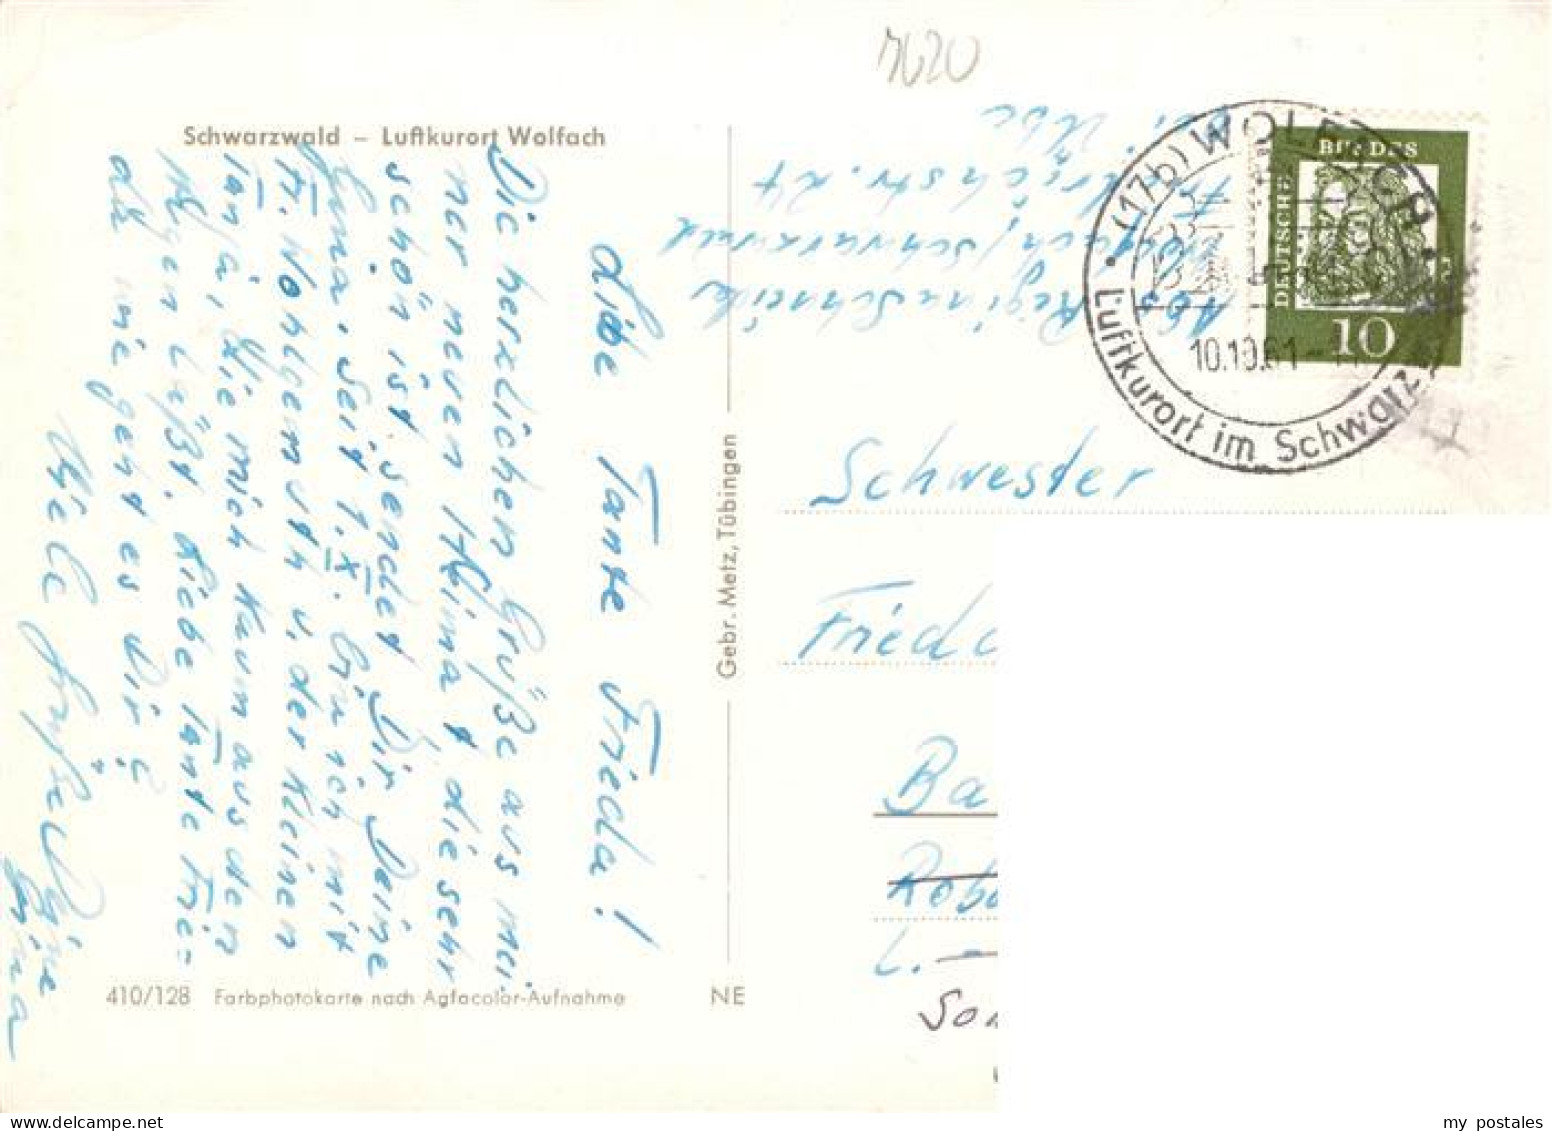 7620
Schwarzwald – Luftkurort Wolfach
Liebe Tante Frieda!
Die herzlichen Grüße aus mei-
ner neuen Heimat, die sehr
schön ist, sendet Dir Deine
Gina. Seit 1.X. bin ich mit
Fr. Wohlgemuth u. der kleinen
Tanja, die mich kaum aus den
Augen läßt. Liebe Tante Frie-
da wie geht es Dir?
Viele
Deine
Gina
410/128 Farbphotokarte nach Agfacolor-Aufnahme
NE
Gebr. Metz, Tübingen
Abs. Regina Schneider
Wolfach/Schwarzwald
str. 24
bei
(17b) WOLFACH
10.10.61
Luftkurort im Schwarzw
DEUTSCHE
BUNDES
10
Schwester
Frieda
Ba
Rob
L.-
Son
my postales